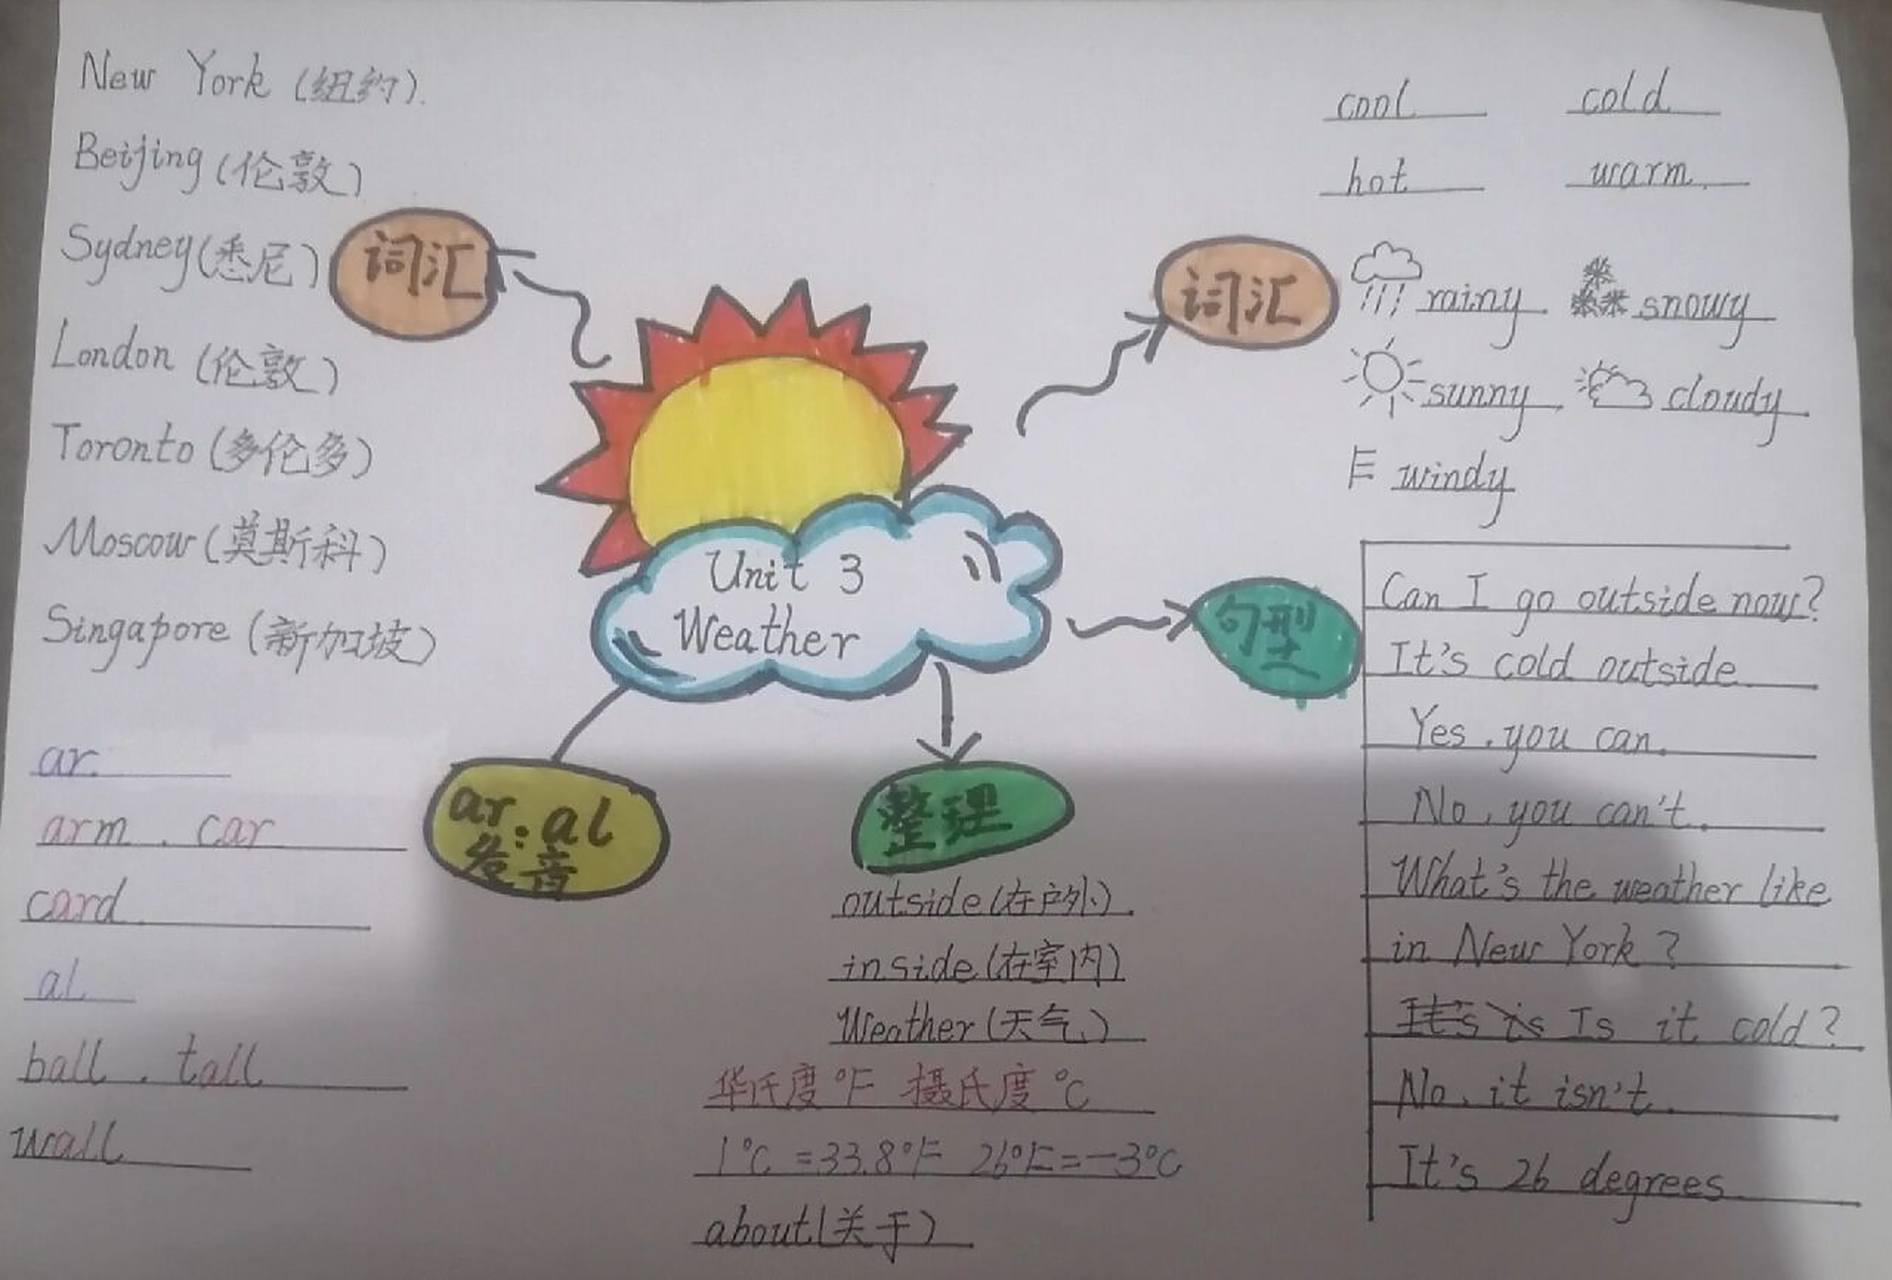 New York (纽约).
Beijing (伦敦)
Sydney (悉尼)
London (伦敦)
Toronto (多伦多)
Moscow (莫斯科)
Singapore (新加坡)
词汇
词汇
cool cold
hot warm.
rainy. snowy
sunny. cloudy.
windy
Unit 3
Weather
句型
Can I go outside now?
It's cold outside
Yes, you can.
No, you can't.
What's the weather like
in New York?
It's is Is it cold?
No, it isn't.
It's 26 degrees
ar. al
发音
ar.
arm. car
card.
al
ball. tall
wall
整理
outside (在户外).
inside (在室内)
Weather (天气)
华氏度 °F 摄氏度 °C
1°C =33.8°F 26°F=-3°C
about (关于)